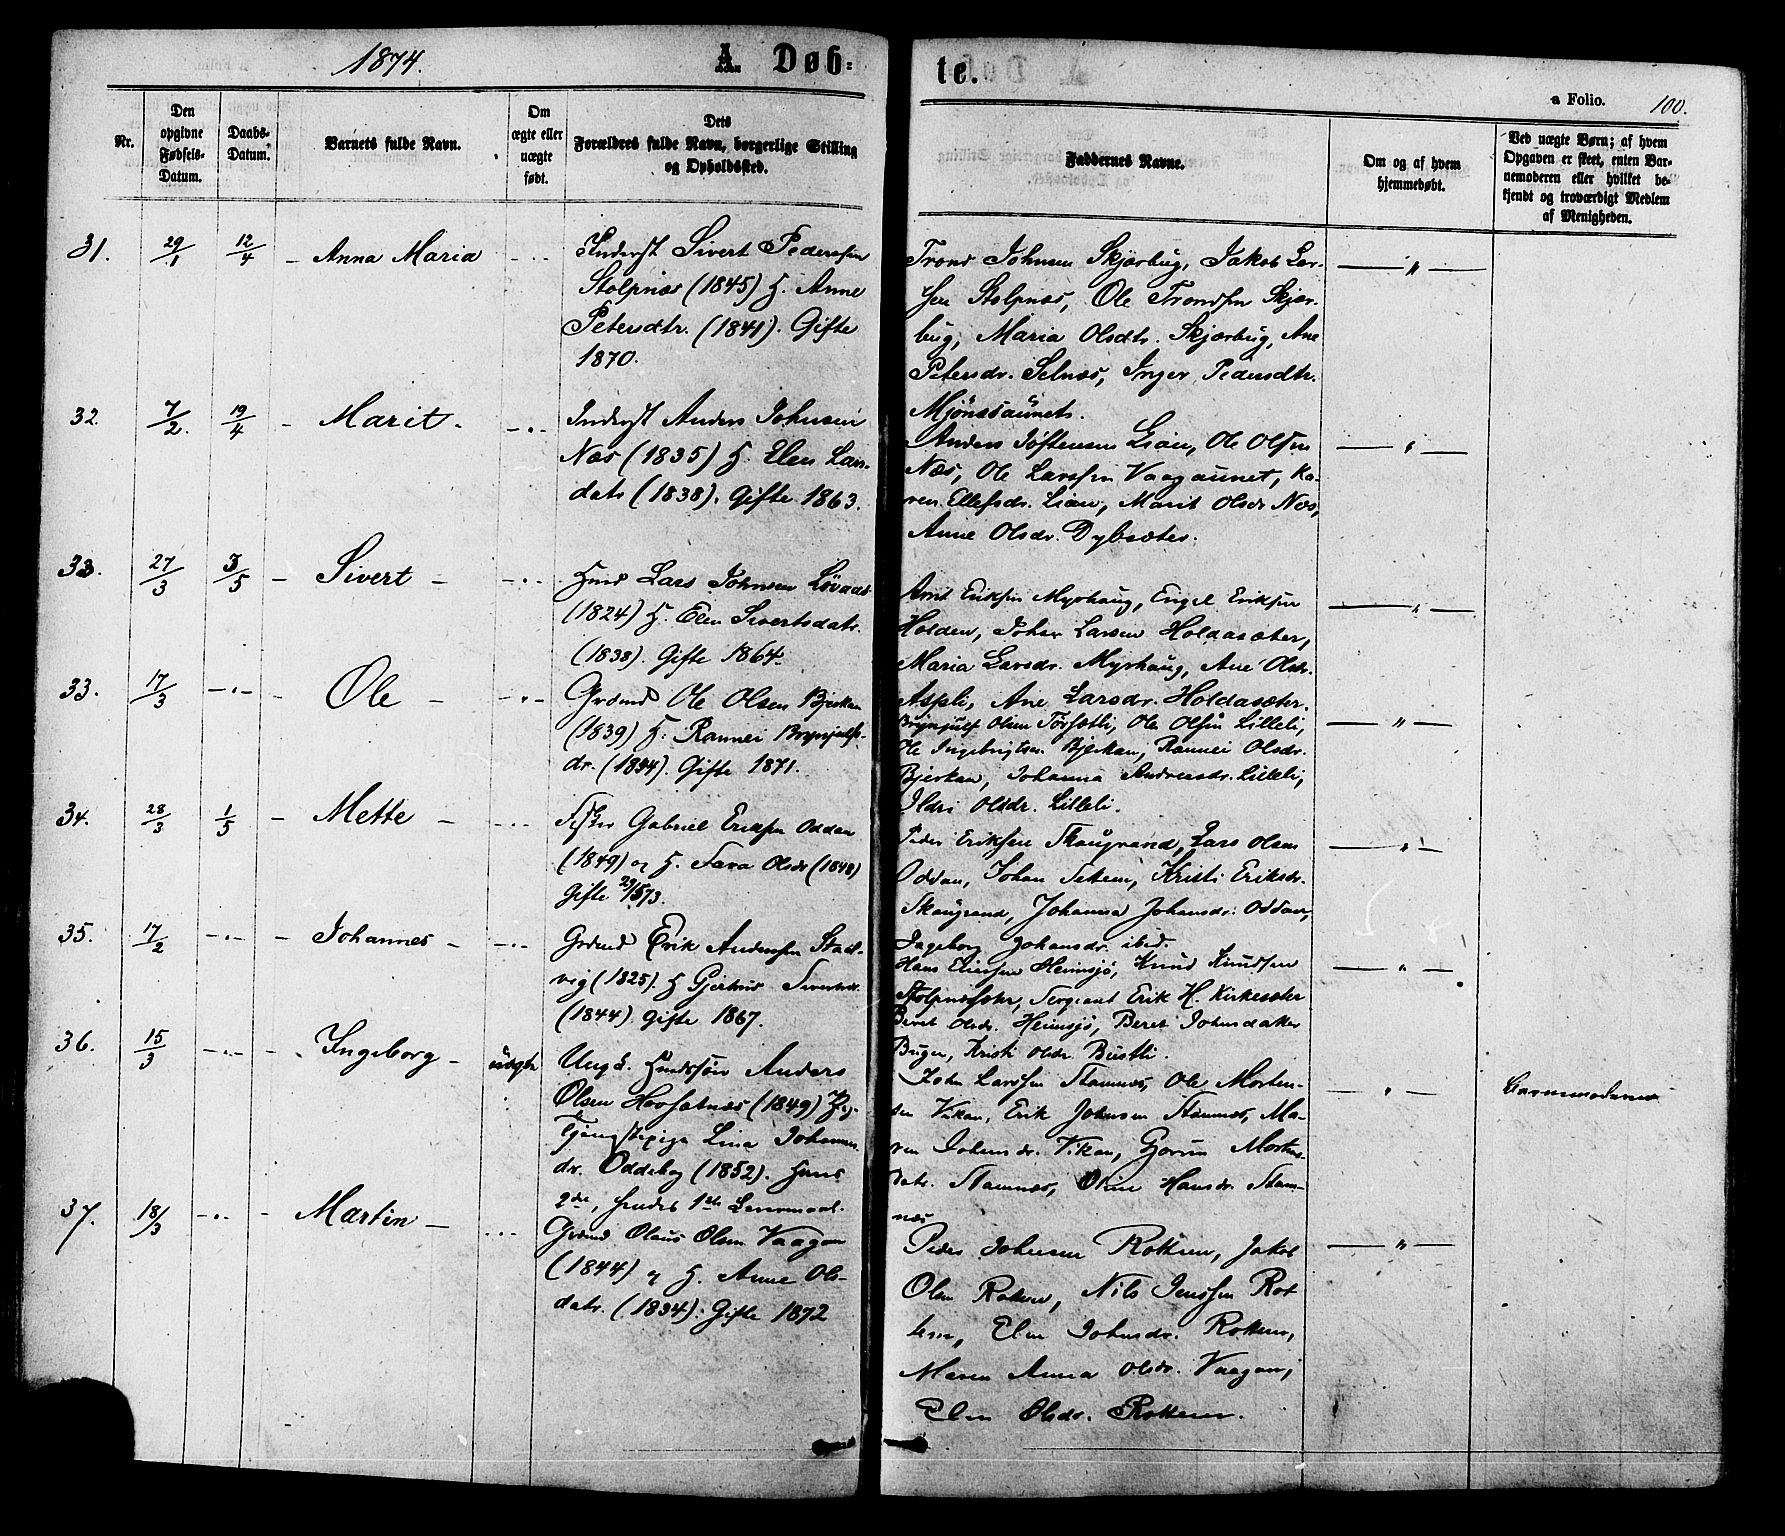 1874.
A. Døb=
te.
a Folio. 100.
Nr.
Den opgivne Fødsels-Datum.
Daabs-Datum.
Barnets fulde Navn.
Om ægte eller uægte født.
Dets
Forældres fulde Navn, borgerlige Stilling
og Opholdssted.
Faddernes Navne.
Om og af hvem
hjemmedøbt.
Ved uægte Børn; af hvem
Opgaven er skeet, enten Bar-
nemoderen eller hvilket be-
kjendt og troværdigt Medlem
af Menigheden.
31. 29/1 12/4 - Anna Maria
Inderst Sivert Pedersen
Stolpnæs (1845) H. Anne
Petersdtr. (1841). Gifte
1870.
Trond Johnsen Skjærbug, Jakob Lar-
sen Stolpnæs, Ole Trondsen Skjær-
bug, Maria Olsdtr. Skjærbug, Ane
Petersdr. Selnæs, Inger Pedersdtr.
Mjønæsaunet.
32. 7/2. 19/4 - Marit.
Inderst Anders Johnsen
Næs (1835) H. Elen Lars-
datr (1838). Gifte 1863.
Anders Lian, Ole Olsen
Næs, Ole Larssen Vaagaunet, Ka-
ren Ellefsdr. Lian, Marit Olsdr Næs,
Anne Olsdr. Dybsæter.
33. 27/3 3/5 - Sivert -
Lars Johnsen Løvaas
(1824) H. Elen Sivertsdatr.
(1838). Gifte 1864.
Arnt Eriksen Myrhaug, Engel Eriksen
Holden, Johan Larsen Holdasæter,
Maria Larsdr. Myrhaug, Ane Olsdr.
Aspli, Ane Larsdr. Holdasæter.
33. 17/3 - Ole -
Grdmd Ole Olsen Bjerkan
(1839) H. Rannei Brynjulfs-
dr. (1834). Gifte 1871.
Brynjulf Olsen Torsetli, Ole Olsen Lilleli,
Ole Ingebrigtsen Bjerkan, Rannei Olsdr.
Bjerkan, Johanna Andreasdr. Lilleli,
Ildri Olsdr. Lilleli.
34. 28/3 1/5 - Mette -
Fisker Gabriel Eriksen Oddan
(1849) og H. Sara Olsdr (1848)
Gifte 29/5 73.
Peder Eriksen Skaugrand, Lars Olsen
Oddan, Johan Kristi Eriksdr.
Skaugrand, Johanna Johansdr. Oddan,
Ingeborg Johansdr. ibid.
35. 17/2 - Johannes -
Grdmd Erik Andersen Stad-
vig (1825). H Gjertrud Sivertsdr.
(1844) Gifte 1867.
Hans Heimsjø, Knud Knudsen
Stolpnæs, Sergeant Erik H. Kirkesæter
Beret Olsdr. Heimsjø, Beret Johnsdatter
Bugen, Kristi Olsdr. Bustli.
36. 15/3 - Ingeborg - uægte
Ungk. Anders
Olsen (1849) og
Tjenestepige Lina Johannes-
dr. Oddebog (1852). Hans
2det, hendes 1ste Leiermaal.
John Larssen Stamnes, Ole Morten-
sen Vikan, Erik Johnsen Stamnes, Ma-
ren Johnsdr. Vikan, Gjorin Mortens-
datr. Stamnes, Oline Hansdr. Stam-
næs
Barnemoderen
37. 18/3 - Martin -
Grdmd Olaus Olsen Vaagan
(1844) og H. Anne Ols-
datr. (1834). Gifte 1872
Peder Johnsen Rokken, Jakob
Olsen Rokken, Nils Jenssen Rok-
ken, Elen Johnsdr. Rokken,
Maren Anna Olsdr. Vaagan,
Elen Olsdr. Rokken.